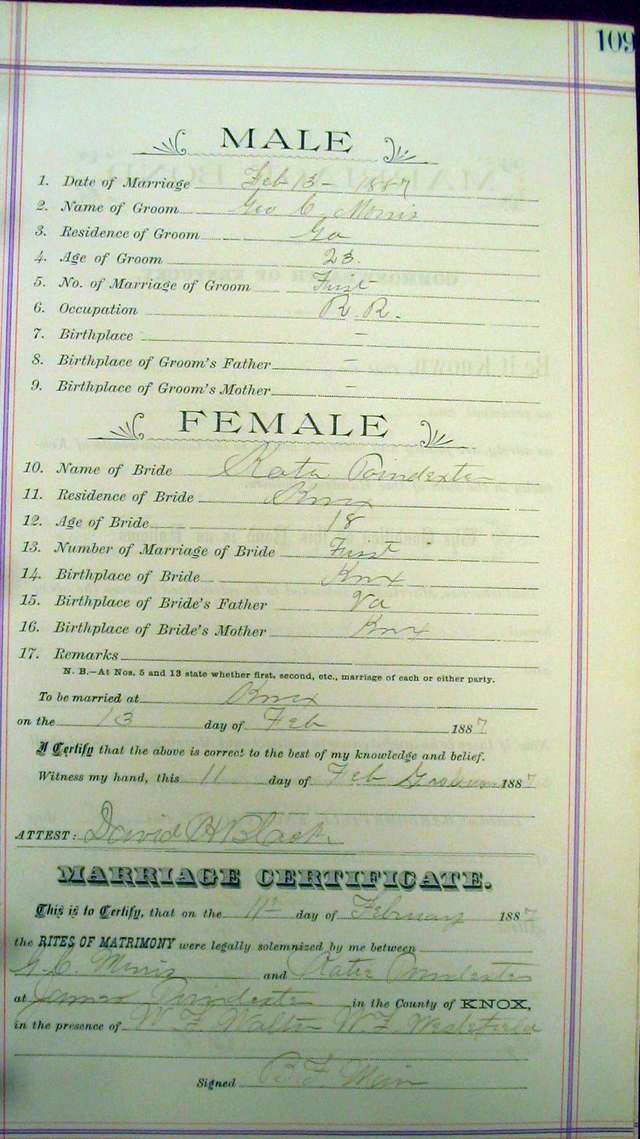 109
MALE
1. Date of Marriage Feb 13 - 1887
2. Name of Groom Geo C. Morris
3. Residence of Groom Ga
4. Age of Groom 23.
5. No. of Marriage of Groom First
6. Occupation R. R.
7. Birthplace -
8. Birthplace of Groom's Father -
9. Birthplace of Groom's Mother -
FEMALE
10. Name of Bride Kate Poindexter
11. Residence of Bride Knox
12. Age of Bride 18
13. Number of Marriage of Bride First
14. Birthplace of Bride Knx
15. Birthplace of Bride's Father Va
16. Birthplace of Bride's Mother Knx
17. Remarks
N. B.—At Nos. 5 and 13 state whether first, second, etc., marriage of each or either party.
To be married at Knox
on the 13 day of Feb 1887
I Certify that the above is correct to the best of my knowledge and belief.
Witness my hand, this 11 day of Feb 1887
ATTEST: David H Black
MARRIAGE CERTIFICATE.
This is to Certify, that on the day of February 1887
the RITES OF MATRIMONY were legally solemnized by me between
G. C. Morris and Katie Poindexter
at James Poindexter in the County of KNOX,
in the presence of W. F. Walter W. F. Westefield
Signed B. F.